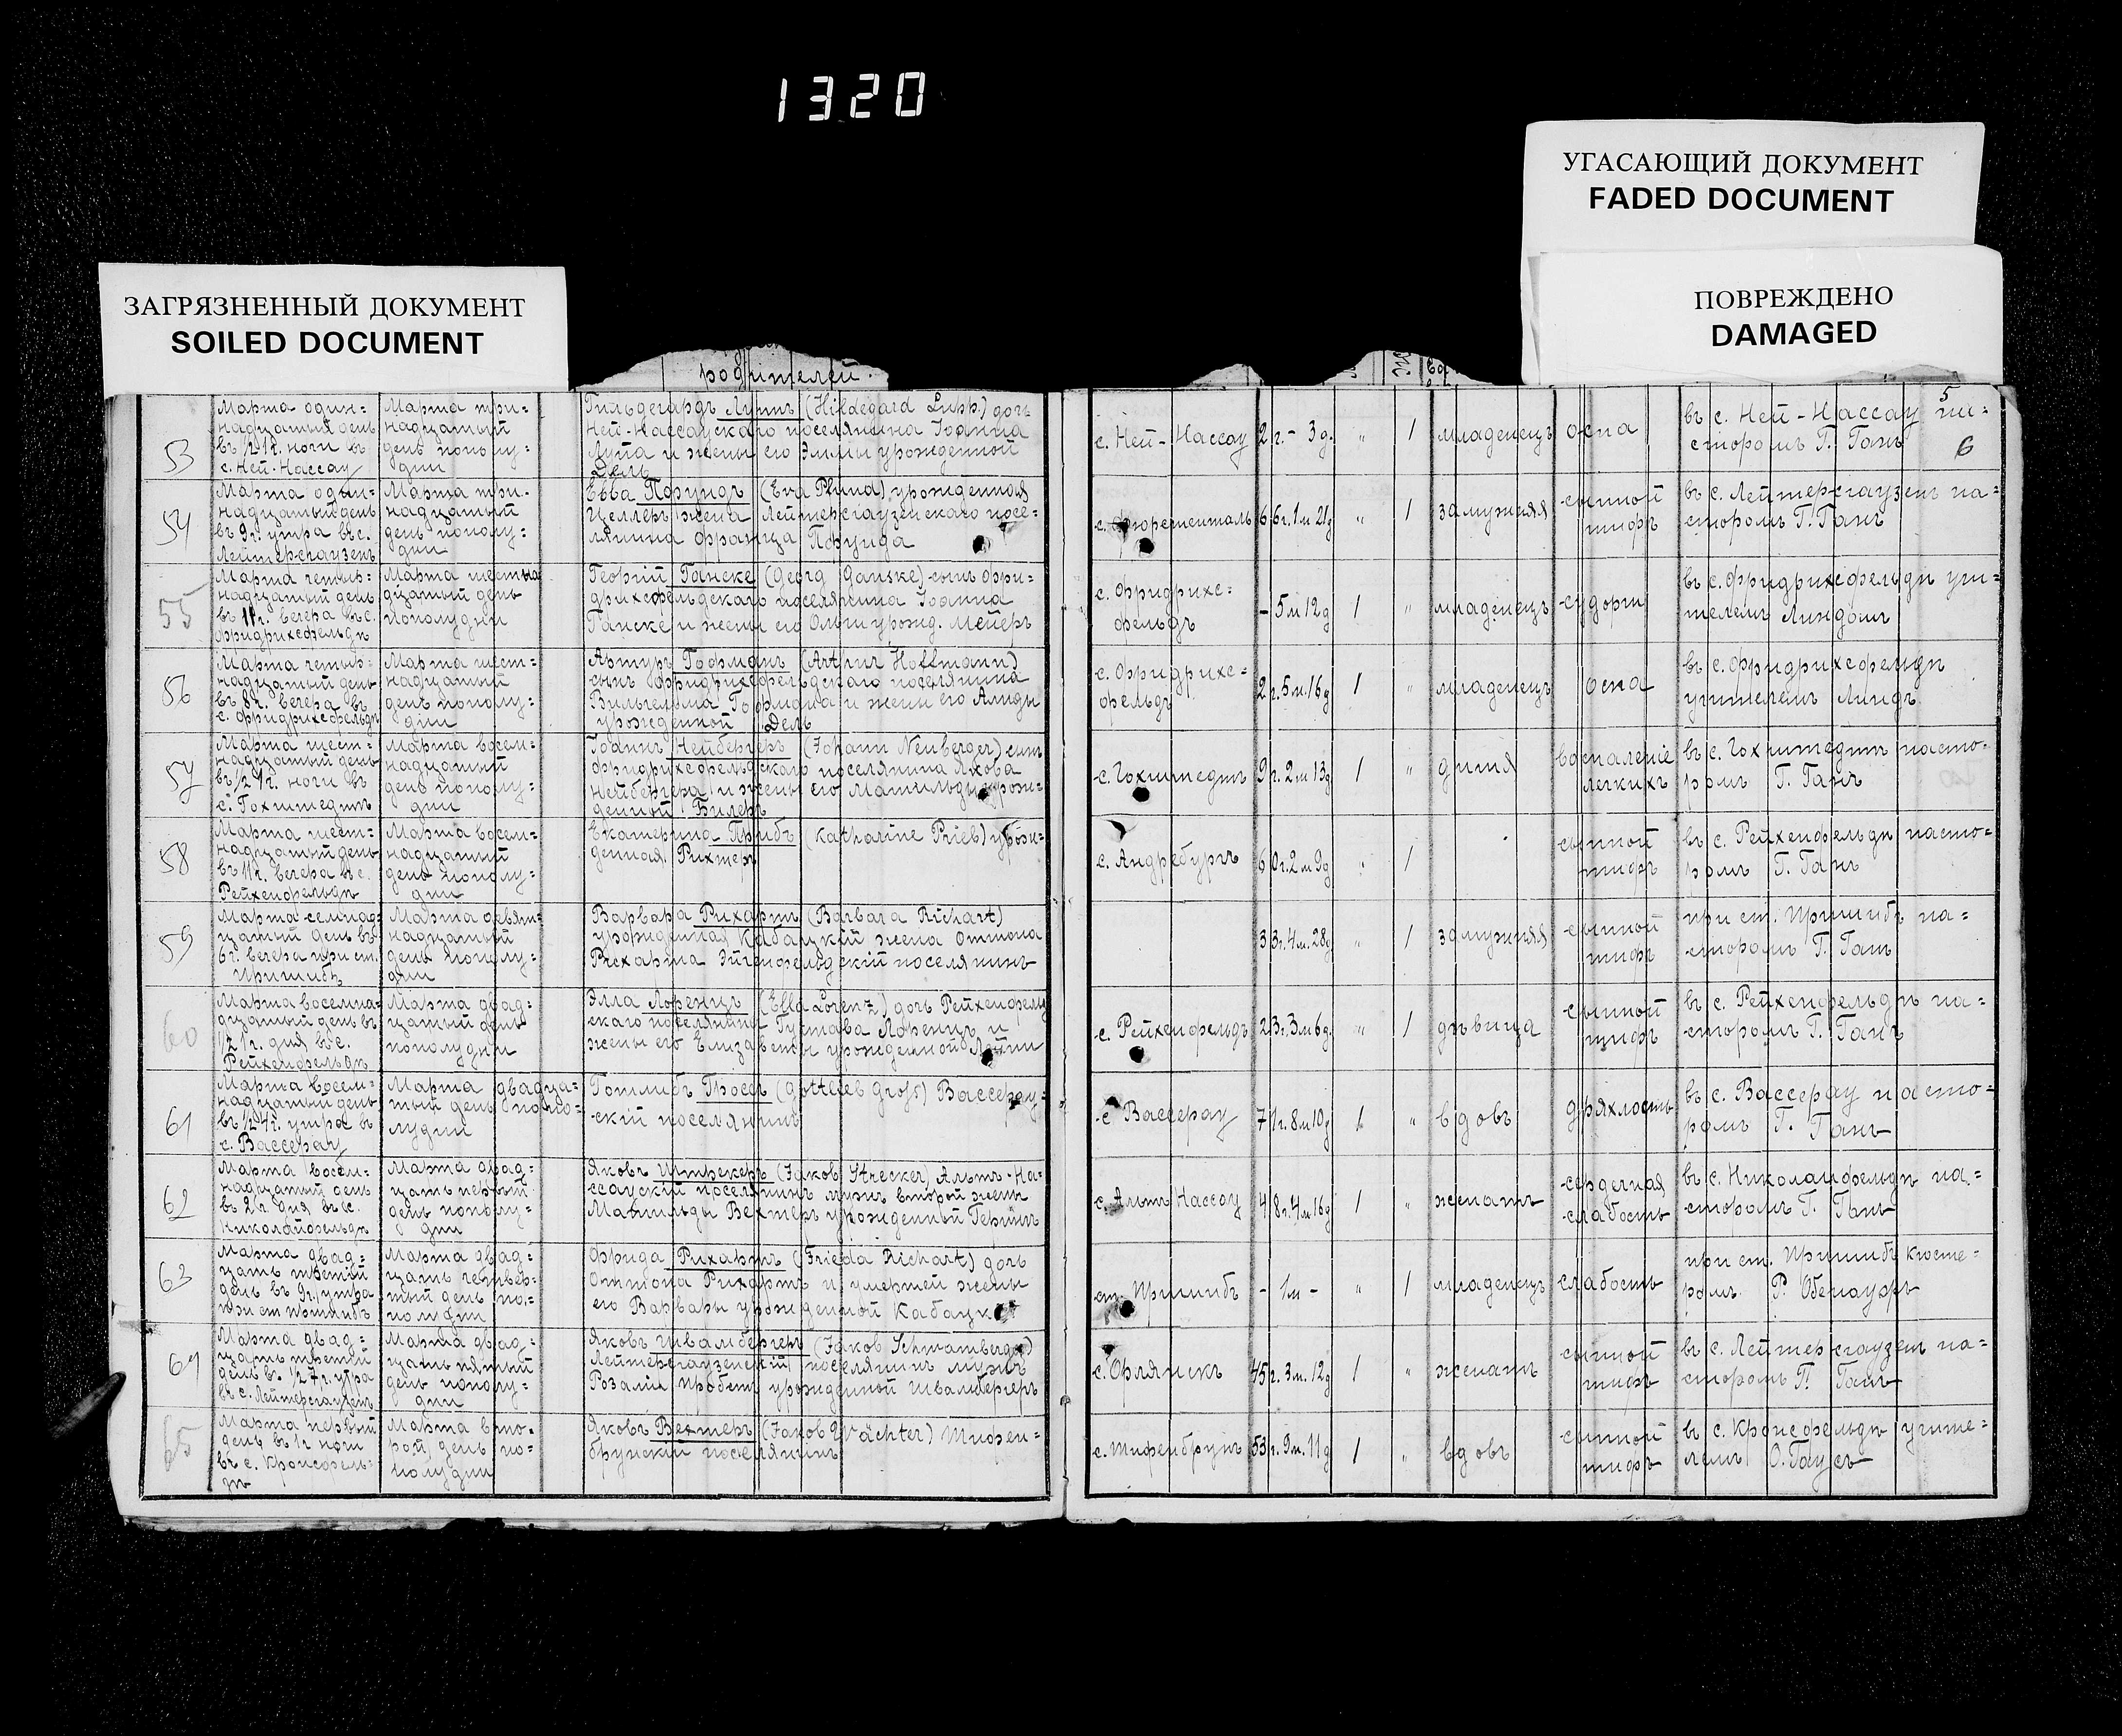 1320
УГАСАЮЩИЙ ДОКУМЕНТ
FADED DOCUMENT
ПОВРЕЖДЕНО
DAMAGED
ЗАГРЯЗНЕННЫЙ ДОКУМЕНТ
SOILED DOCUMENT
родителей.
5
6
53
Марта один=
надцатый день
въ ½ 1 г. ночи въ
с. Ней-Нассау
Марта три=
надцатый
день пополу=
дни
Гильдегардъ Луппъ (Hildegard Lupp.) дочь
Ней-Нассаускаго поселянина Іоанна
Луппа и жены его Эммы урожденной
Дель
с. Ней-Нассау
2 г. - 3 д.
"
1
младенецъ
оспа
въ с. Ней-Нассау па=
сторомъ Г. Ганъ
54
Марта один=
надцатый день
въ 9 г. утра въ с.
Лейтерсгаузенъ
Марта три=
надцатый
день пополу=
дни
Евва Пфундъ (Eva Pfund) урожденная
Целлеръ жена Лейтерсгаузенскаго посе=
лянина Франца Пфунда
с. Фюрстенталь
66 г. 1 м 21 д
"
1
замужняя
сыпной
тифъ
въ с. Лейтерсгаузенъ па=
сторомъ Г. Ганъ
55
Марта четыр=
надцатый день
въ 11 г. вечера въ с.
Фридрихсфельдъ
Марта шестна
дцатый день
пополудни
Георгій Ганске (Georg Ganske) сынъ Фри=
дрихсфельдскаго поселянина Іоанна
Ганске и жены его Ольги урожд. Мейеръ
с. Фридрихс=
фельдъ
- 5 м 12 д
1
"
младенецъ
судорги
въ с. Фридрихсфельдъ учи=
телемъ Линдомъ
56
Марта четыр=
надцатый день
въ 8 г. вечера въ
с. Фридрихсфельдъ
Марта шест=
надцатый
день пополу=
дни
Артуръ Гофманъ (Arthur Hoffmann)
сынъ Фридрихсфельдскаго поселянина
Вильгельма Гофмана и жены его Алиды
урожденной Дель
с. Фридрихс=
фельдъ
2 г. 5 м. 16 д
1
"
младенецъ
оспа
въ с. Фридрихсфельдъ
учителемъ Линдъ
57
Марта шест=
надцатый день
въ ½ 1 г. ночи въ
с. Гохштедтъ
Марта восем=
надцатый
день пополу=
дни
Іоаннъ Нейбергеръ (Johann Neuberger) сынъ
Фридрихсфельдскаго поселянина Якова
Нейбергера и жены его Матильды урож=
денной Билеръ
с. Гохштедтъ
9 г. 2 м 13 д
1
"
дитя
воспаленіе
легкихъ
въ с. Гохштедтъ пасто=
ромъ Г. Ганъ
58
Марта шест=
надцатый день
въ 11 г. вечера въ с.
Рейхенфельдъ
Марта восем=
надцатый
день пополу=
дни
Екатерина Прибъ (Katharine Prieb) урож=
денная Рихтеръ
с. Андребургъ
60 г. 2 м 9 д
"
1
сыпной
тифъ
въ с. Рейхенфельдъ пасто=
ромъ Г. Ганъ
59
Марта семнад=
цатый день въ
6 г. вечера при ст.
Пришибъ
Марта девят=
надцатый
день пополу=
дни
Варвара Рихартъ (Barbara Richart)
урожденная Кабацкій жена Оттона
Рихарта Эйгенфельдскій поселянинъ
33 г. 4 м. 28 д
"
1
замужняя
сыпной
тифъ
при ст. Пришибъ па=
сторомъ Г. Ганъ
60
Марта восемна=
дцатый день въ
½ 1 г. дня въ с.
Рейхенфельдъ
Марта двад=
цатый день
пополудни
Элла Лоренцъ (Ella Lorenz) дочь Рейхенфельд
скаго поселянина Густава Лоренцъ и
жены его Елизаветы урожденной
с. Рейхенфельдъ
23 г. 3 м 6 д.
"
1
дѣвица
сыпной
тифъ
въ с. Рейхенфельдъ па=
сторомъ Г. Ганъ
61
Марта восем=
надцатый день
въ ½ 4 г. утра въ
с. Вассерау
Марта двадца=
тый день попо=
лудни
Готлибъ Гроссъ (Gottlieb Groß) Вассерау=
скій поселянинъ
с Вассерау
71 г. 8 м 10 д
1
"
вдовъ
дряхлость
въ с. Вассерау пасто=
ромъ Г. Ганъ
62
Марта восем=
надцатый день
въ 2 г. дня въ с.
Николайфельдъ
Марта двад=
цать первый
день пополу=
дни
Яковъ Штрекеръ (Jakob Strecker) Альтъ-На=
ссаускій поселянинъ мужъ второй жены
Матильды Вехтеръ урожденный Герингъ
с. Альтъ Нассау
48 г. 4 м 16 д
1
"
женатъ
сердечная
слабость
въ с. Николайфельдъ па=
сторомъ Г. Ганъ
63
Марта двад=
цать третій
день въ 9 г. утра
при ст Пришибъ
Марта двад=
цать четвер=
тый день по=
полудни
Фрида Рихартъ (Frieda Richart) дочь
Оттона Рихартъ и умершей жены
его Варвары урожденной Кабацкій
ст. Пришибъ
- 1 м -
"
1
младенецъ
слабость
при ст. Пришибъ кюсте=
ромъ Р. Обенауэръ
64
Марта двад=
цать третій
день въ ½ 7 г. утра
въ с. Лейтерсгаузенъ
Марта двад=
цать пятый
день пополу=
дни
Яковъ Швамбергеръ (Jakob Schwamberger)
Лейтерсгаузенскій поселянинъ мужъ
Розаліи Пробстъ урожденной Швамбергеръ
с. Орлянскъ
45 г. 3 м. 12 д
1
"
женатъ
сыпной
тифъ
въ с. Лейтерсгаузенъ па=
сторомъ Г. Ганъ
65
Марта первый
день въ 1 г ночи
въ с. Кронсфель=
дъ
Марта вто=
рой день по=
полудни
Яковъ Вехтеръ (Jakob Wächter) Тифен=
брунскій поселянинъ
с. Тифенбрунъ
53 г. 9 м. 11 д
1
"
вдовъ
сыпной
тифъ
въ с. Кронсфельдъ учите=
лемъ О. Гаусъ